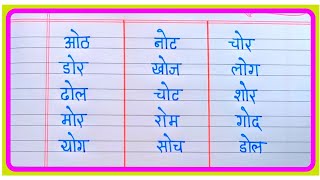 ओठ नोट चोर
डोर खोज लोग
ढोल चोट शोर
मोर रोम गोद
योग सोच डोल